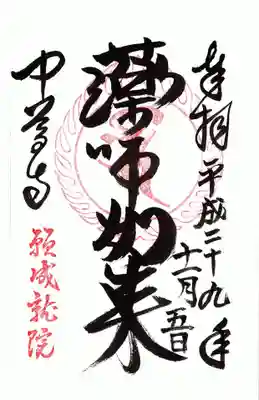 奉拝
平成二十九年
十一月五日
薬師如来
中尊寺
願成就院